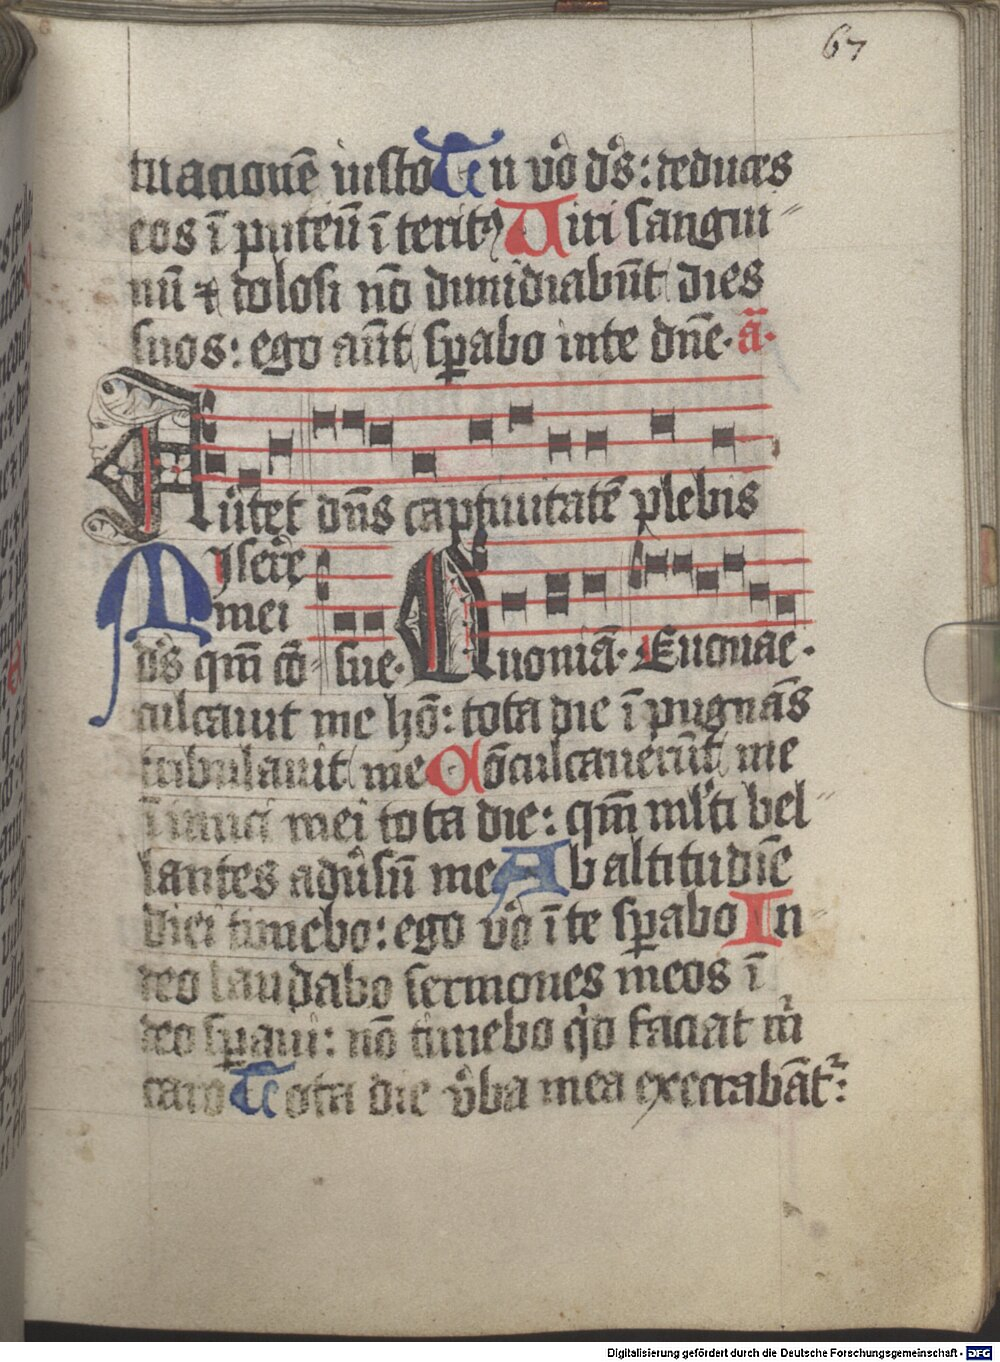 67
tuacionē iusto Tu v̊o d̄s: deduces
eos ī puteū ī terit9 Viri sangui〃
nū ⁊ dolosi nō dimidiabūt dies
suos: ego aūt sp̱abo in te dn̄e. a̅.
Au̓tet dn̄s captiuitatē plebis
Misere̅
mei
ds̄ qm̄ cō sue. Quoniā. Euouae.
culcauit me hō: tota die ī pugnās
tribulauit me Cōculcauerūt me
īimici mei tota die: qm̄ ml̓ti bel〃
lantes adu̓sū me Ab altitudīe
diei timebo: ego v̊o ī te sp̱abo In
deo laudabo sermones meos ī
deo sp̱aui: nō timebo qͥd faciat m̓
caro Tota die v̓ba mea execrabāt᷑:
Digitalisierung gefördert durch die Deutsche Forschungsgemeinschaft - DFG